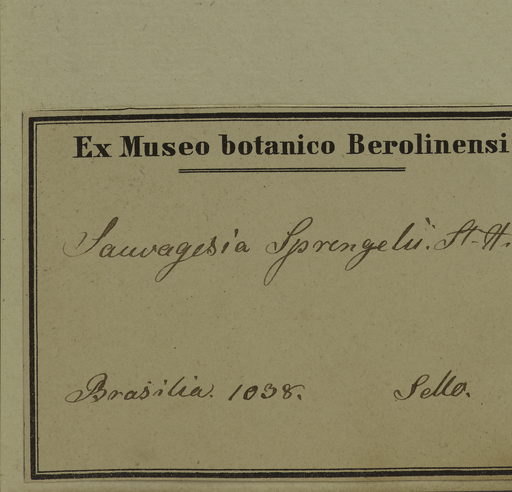 Ex Museo botanico Berolinensi
Sauvagesia Sprengelii. St.-H.
Brasilia. 1038. Sello.